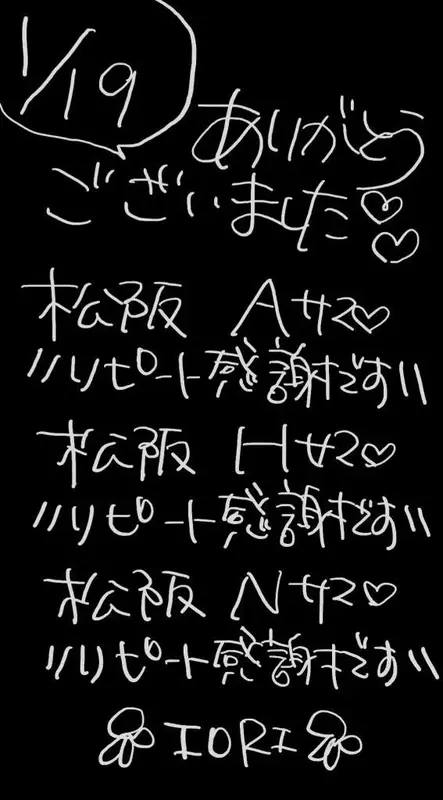 1/19
ありがとう
ございました♡♡
松阪 Aサマ♡
〃リピート感謝です〃
松阪 Hサマ♡
〃リピート感謝です〃
松阪 Nサマ♡
〃リピート感謝です〃
IORI